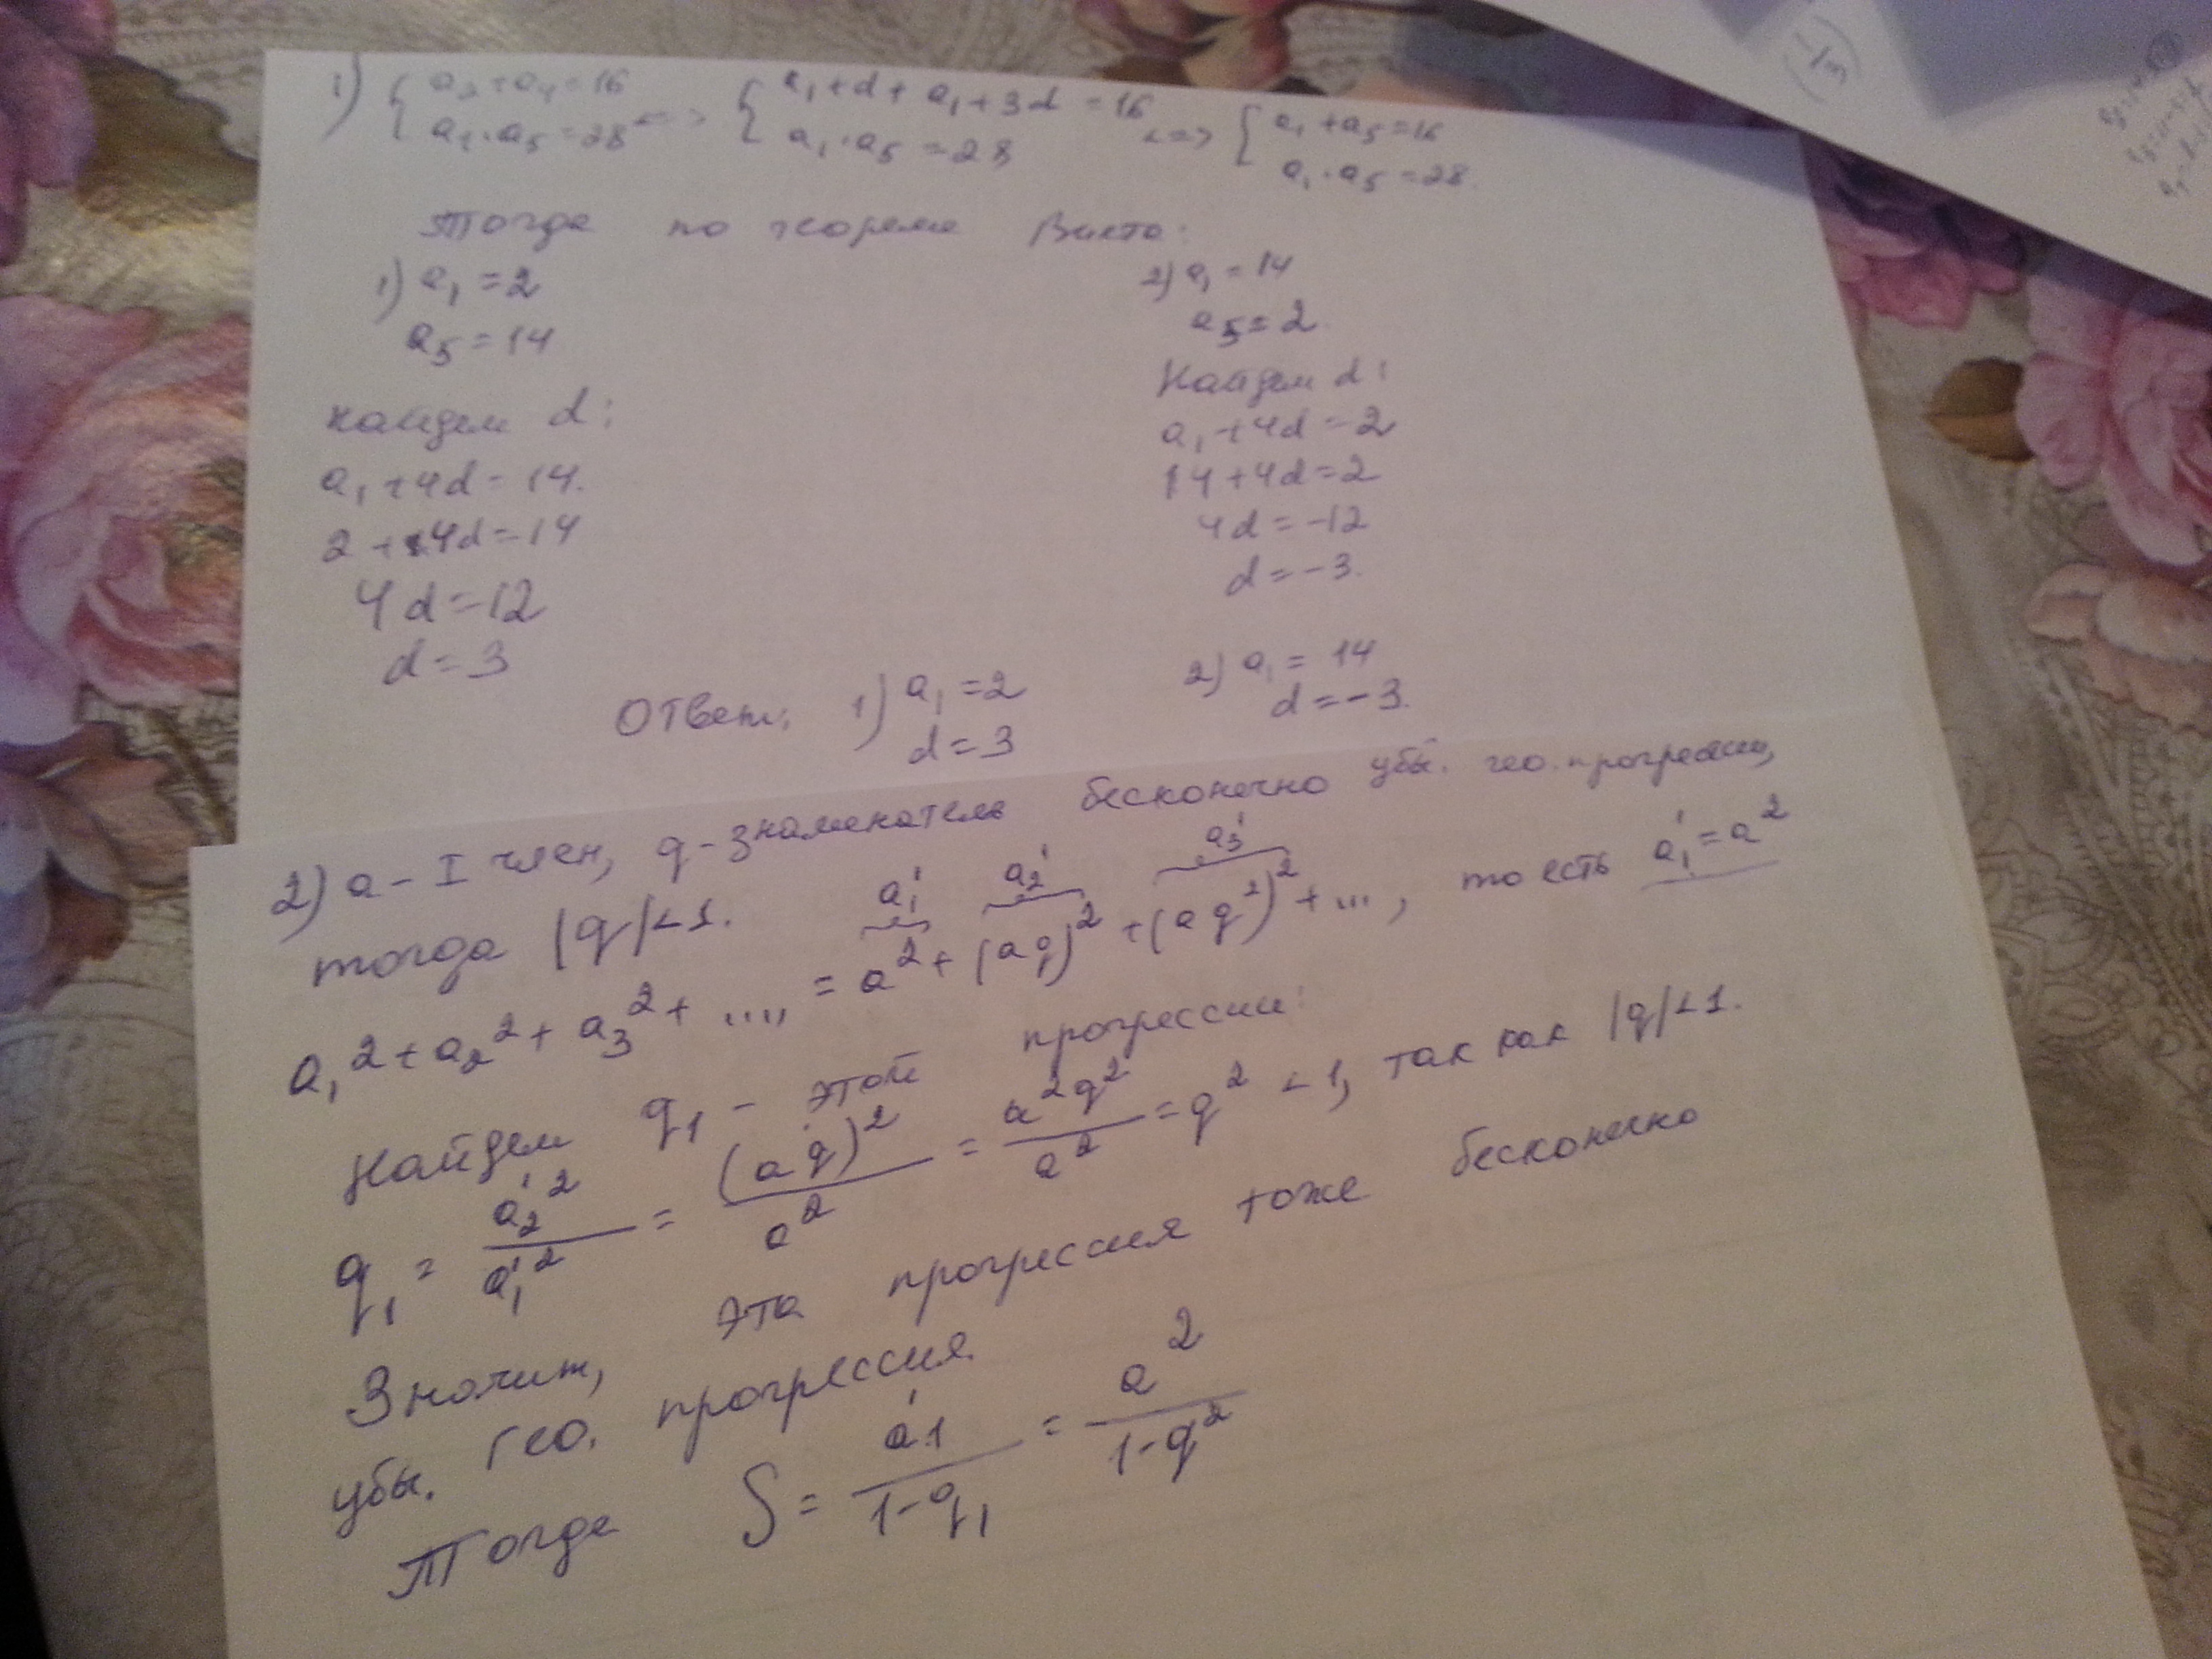 1) { a₂+a₄=16 <=> { a₁+d+a₁+3d=16 <=> { a₁+a₅=16
a₁·a₅=28 a₁·a₅=28 a₁·a₅=28.
Тогда по теореме Виета:
1) a₁=2 2) a₁=14
a₅=14 a₅=2
найдем d: Найдем d:
a₁+4d=14. a₁+4d=2
2+4d=14 14+4d=2
4d=12 4d=-12
d=3 d=-3.
Ответ: 1) a₁=2 2) a₁=14
d=3 d=-3.
2) a - I член, q - знаменатель бесконечно убы. гео. прогрессии,
тогда |q|<1.
a₁' a₂' a₃'
a₁²+a₂²+a₃²+.... = a²+(aq)²+(aq²)²+..., то есть a₁'=a²
Найдем q₁ - этой прогрессии:
q₁ = a₂'²/a₁'² = (aq)²/a² = a²q²/a² = q² <1, так как |q|<1.
Значит, эта прогрессия тоже бесконечно
убы. гео. прогрессия.
Тогда S = a'1/1-q₁ = a²/1-q²
(1/3)